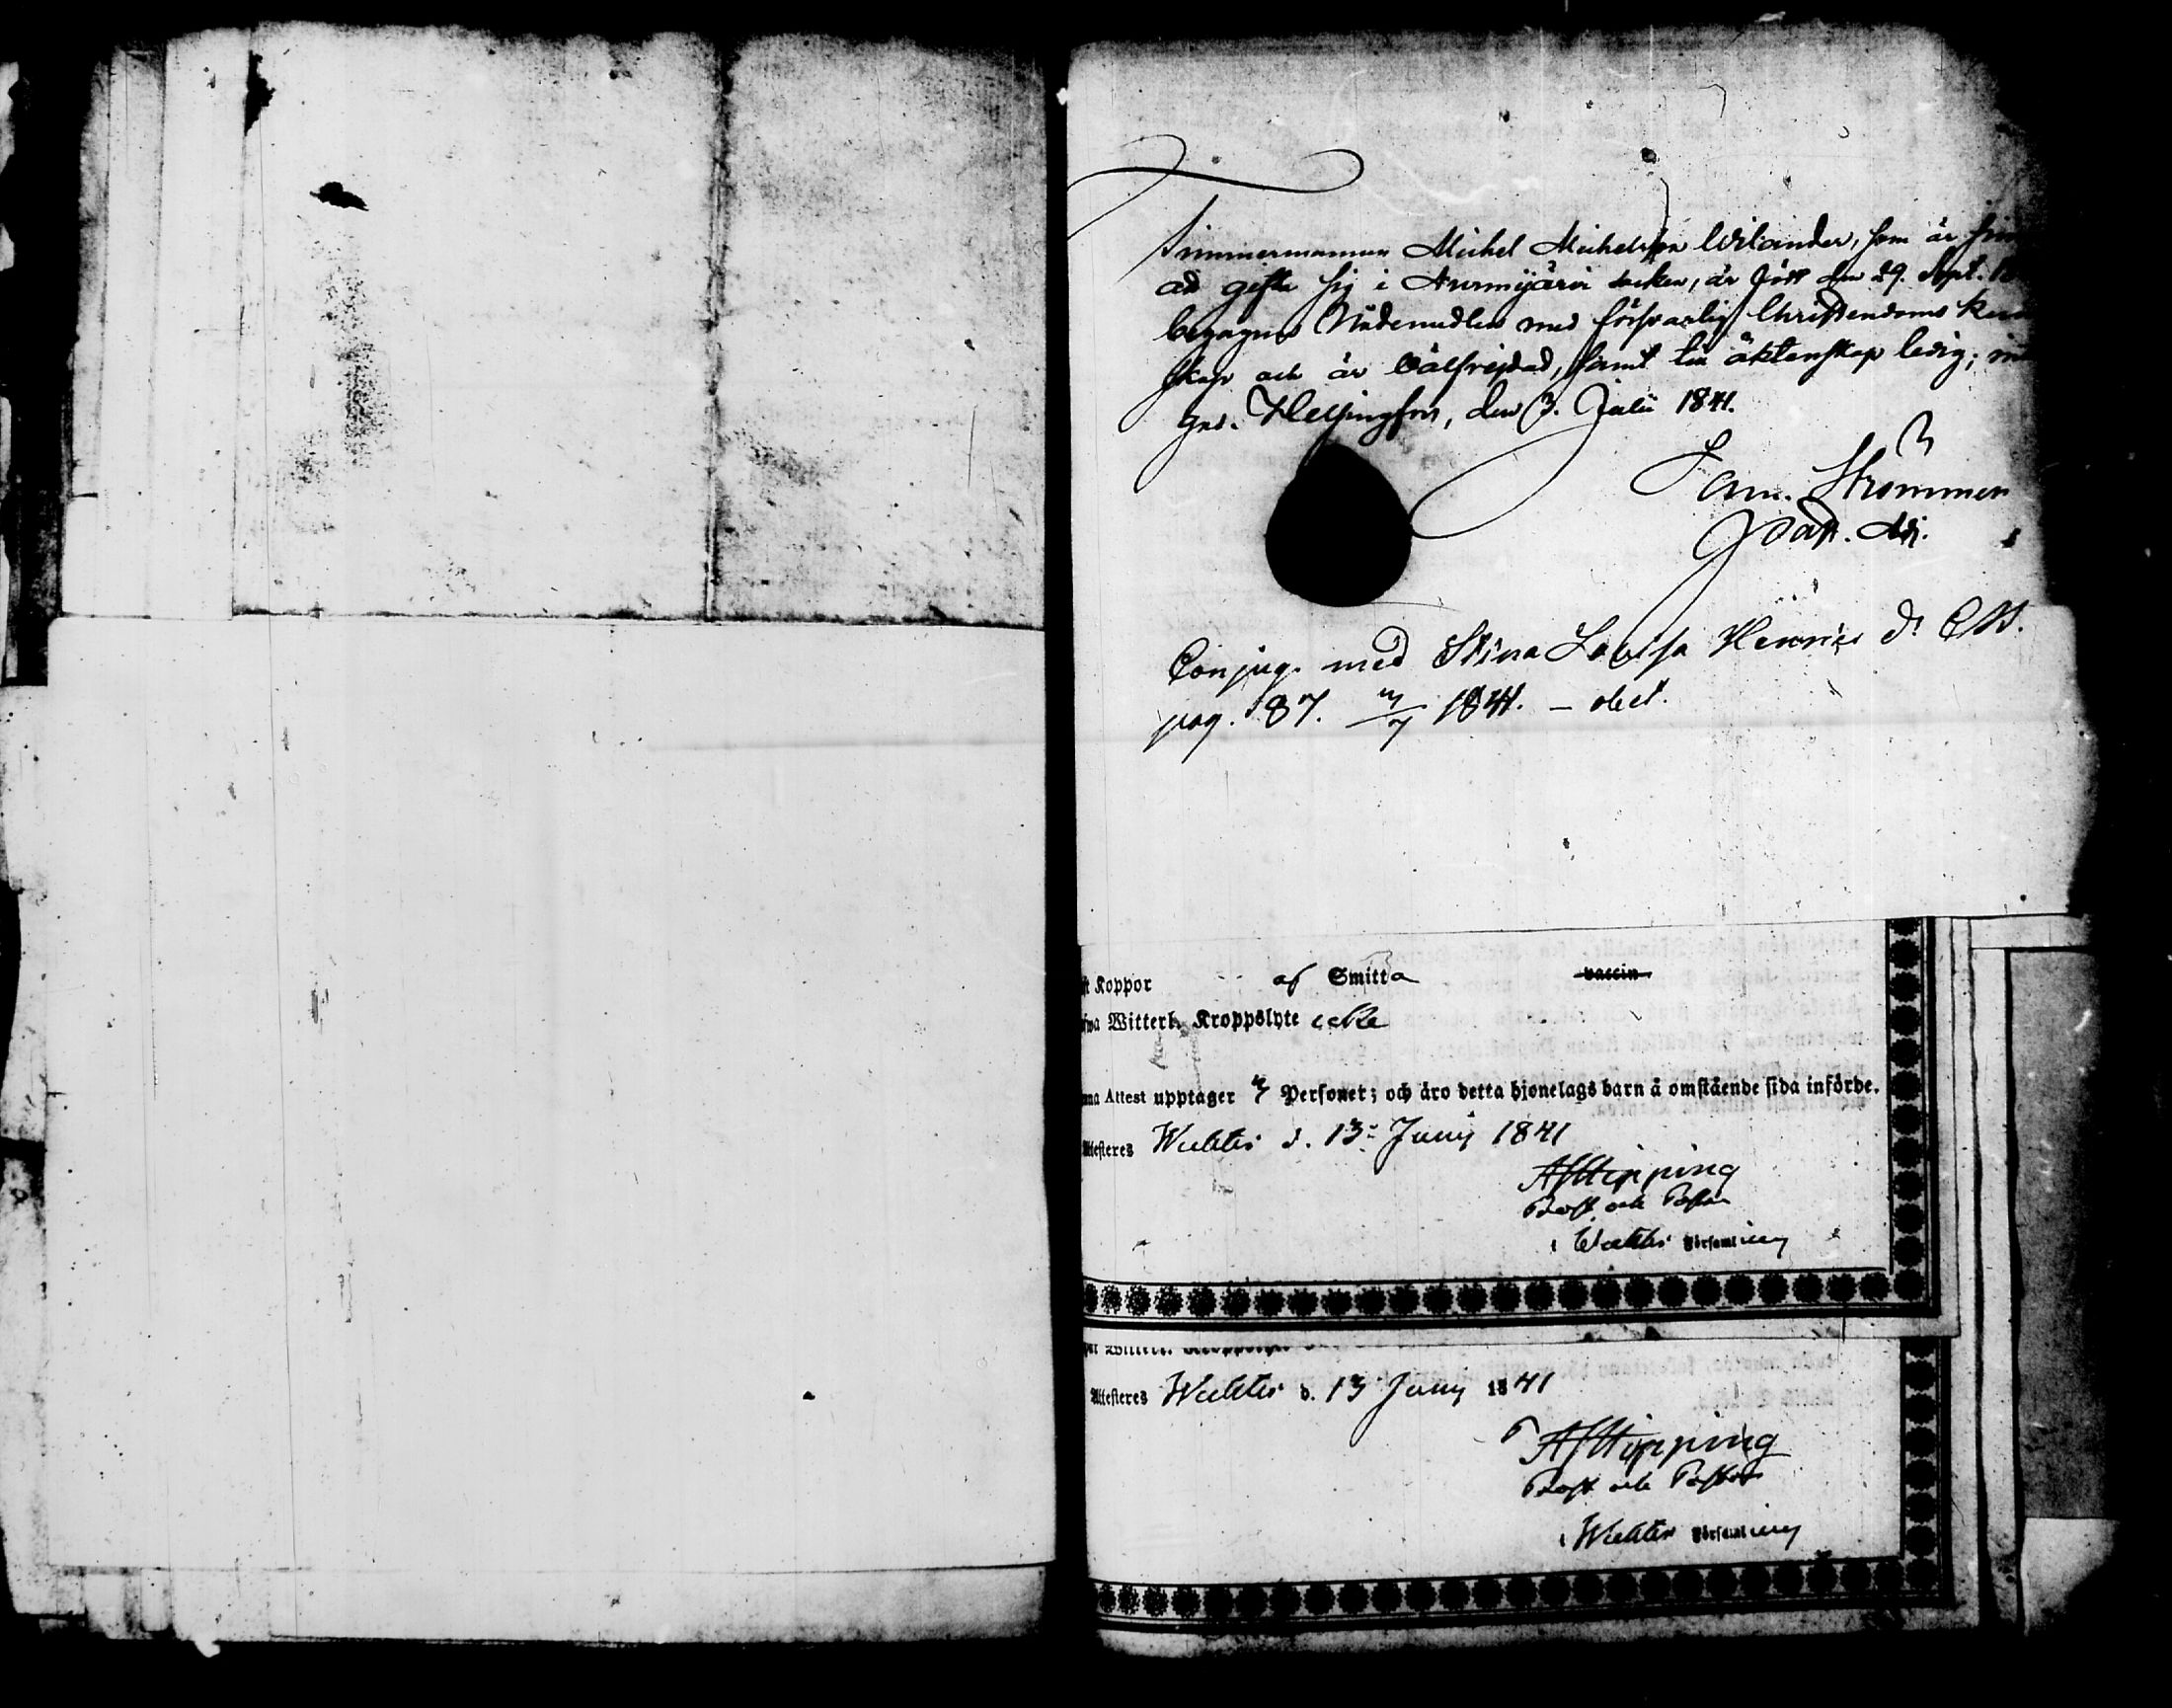 Timmermannen Michel Michelsson Wilander, som är
att gifta sig i Nurmijärvi socken, är född den 29. Sept. 18
begagnar Nådemedlen med försvarlig Christendoms
skap och är välfrejdad, samt till äktenskap ledig;
Helsingfors, den 3. Julii 1841.
Sam. Strömmer
Past. Adj.
Conjug. med Stina Lovisa Henrics dr
pag. 87. 1841. —
Koppor af Smitta vaccin
Witterl. Kroppslyte icke
Attest upptager Personer; och äro detta hjonelags barn å omstående sida införde.
Attesteres Wichtis d. 13 Junij 1841
A Hipping
Prost och Pastor
i Wichtis Församling
Attesteres Wichtis d. 13 Junij 1841
A Hipping
Prost och Pastor
i Wichtis Församling